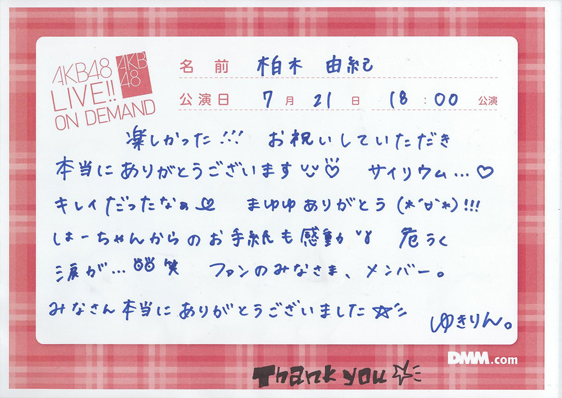 AKB48
LIVE!!
ON DEMAND
AKB
48
名前 柏木 由紀
公演日 7月21日 18:00公演
楽しかった!!! お祝いしていただき
本当にありがとうございます♡ サイリウム…♡
キレイだったなぁ まゆゆありがとう(*´д`*)!!!
はーちゃんからのお手紙も感動 危うく
涙が… 笑 ファンのみなさま、メンバー。
みなさん本当にありがとうございました☆
ゆきりん。
DMM.com
Thank you☆